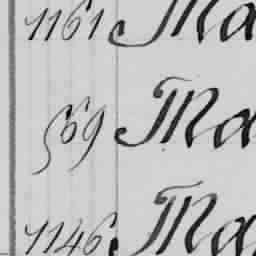 1161 Ma
569 Ma
1146 Ma